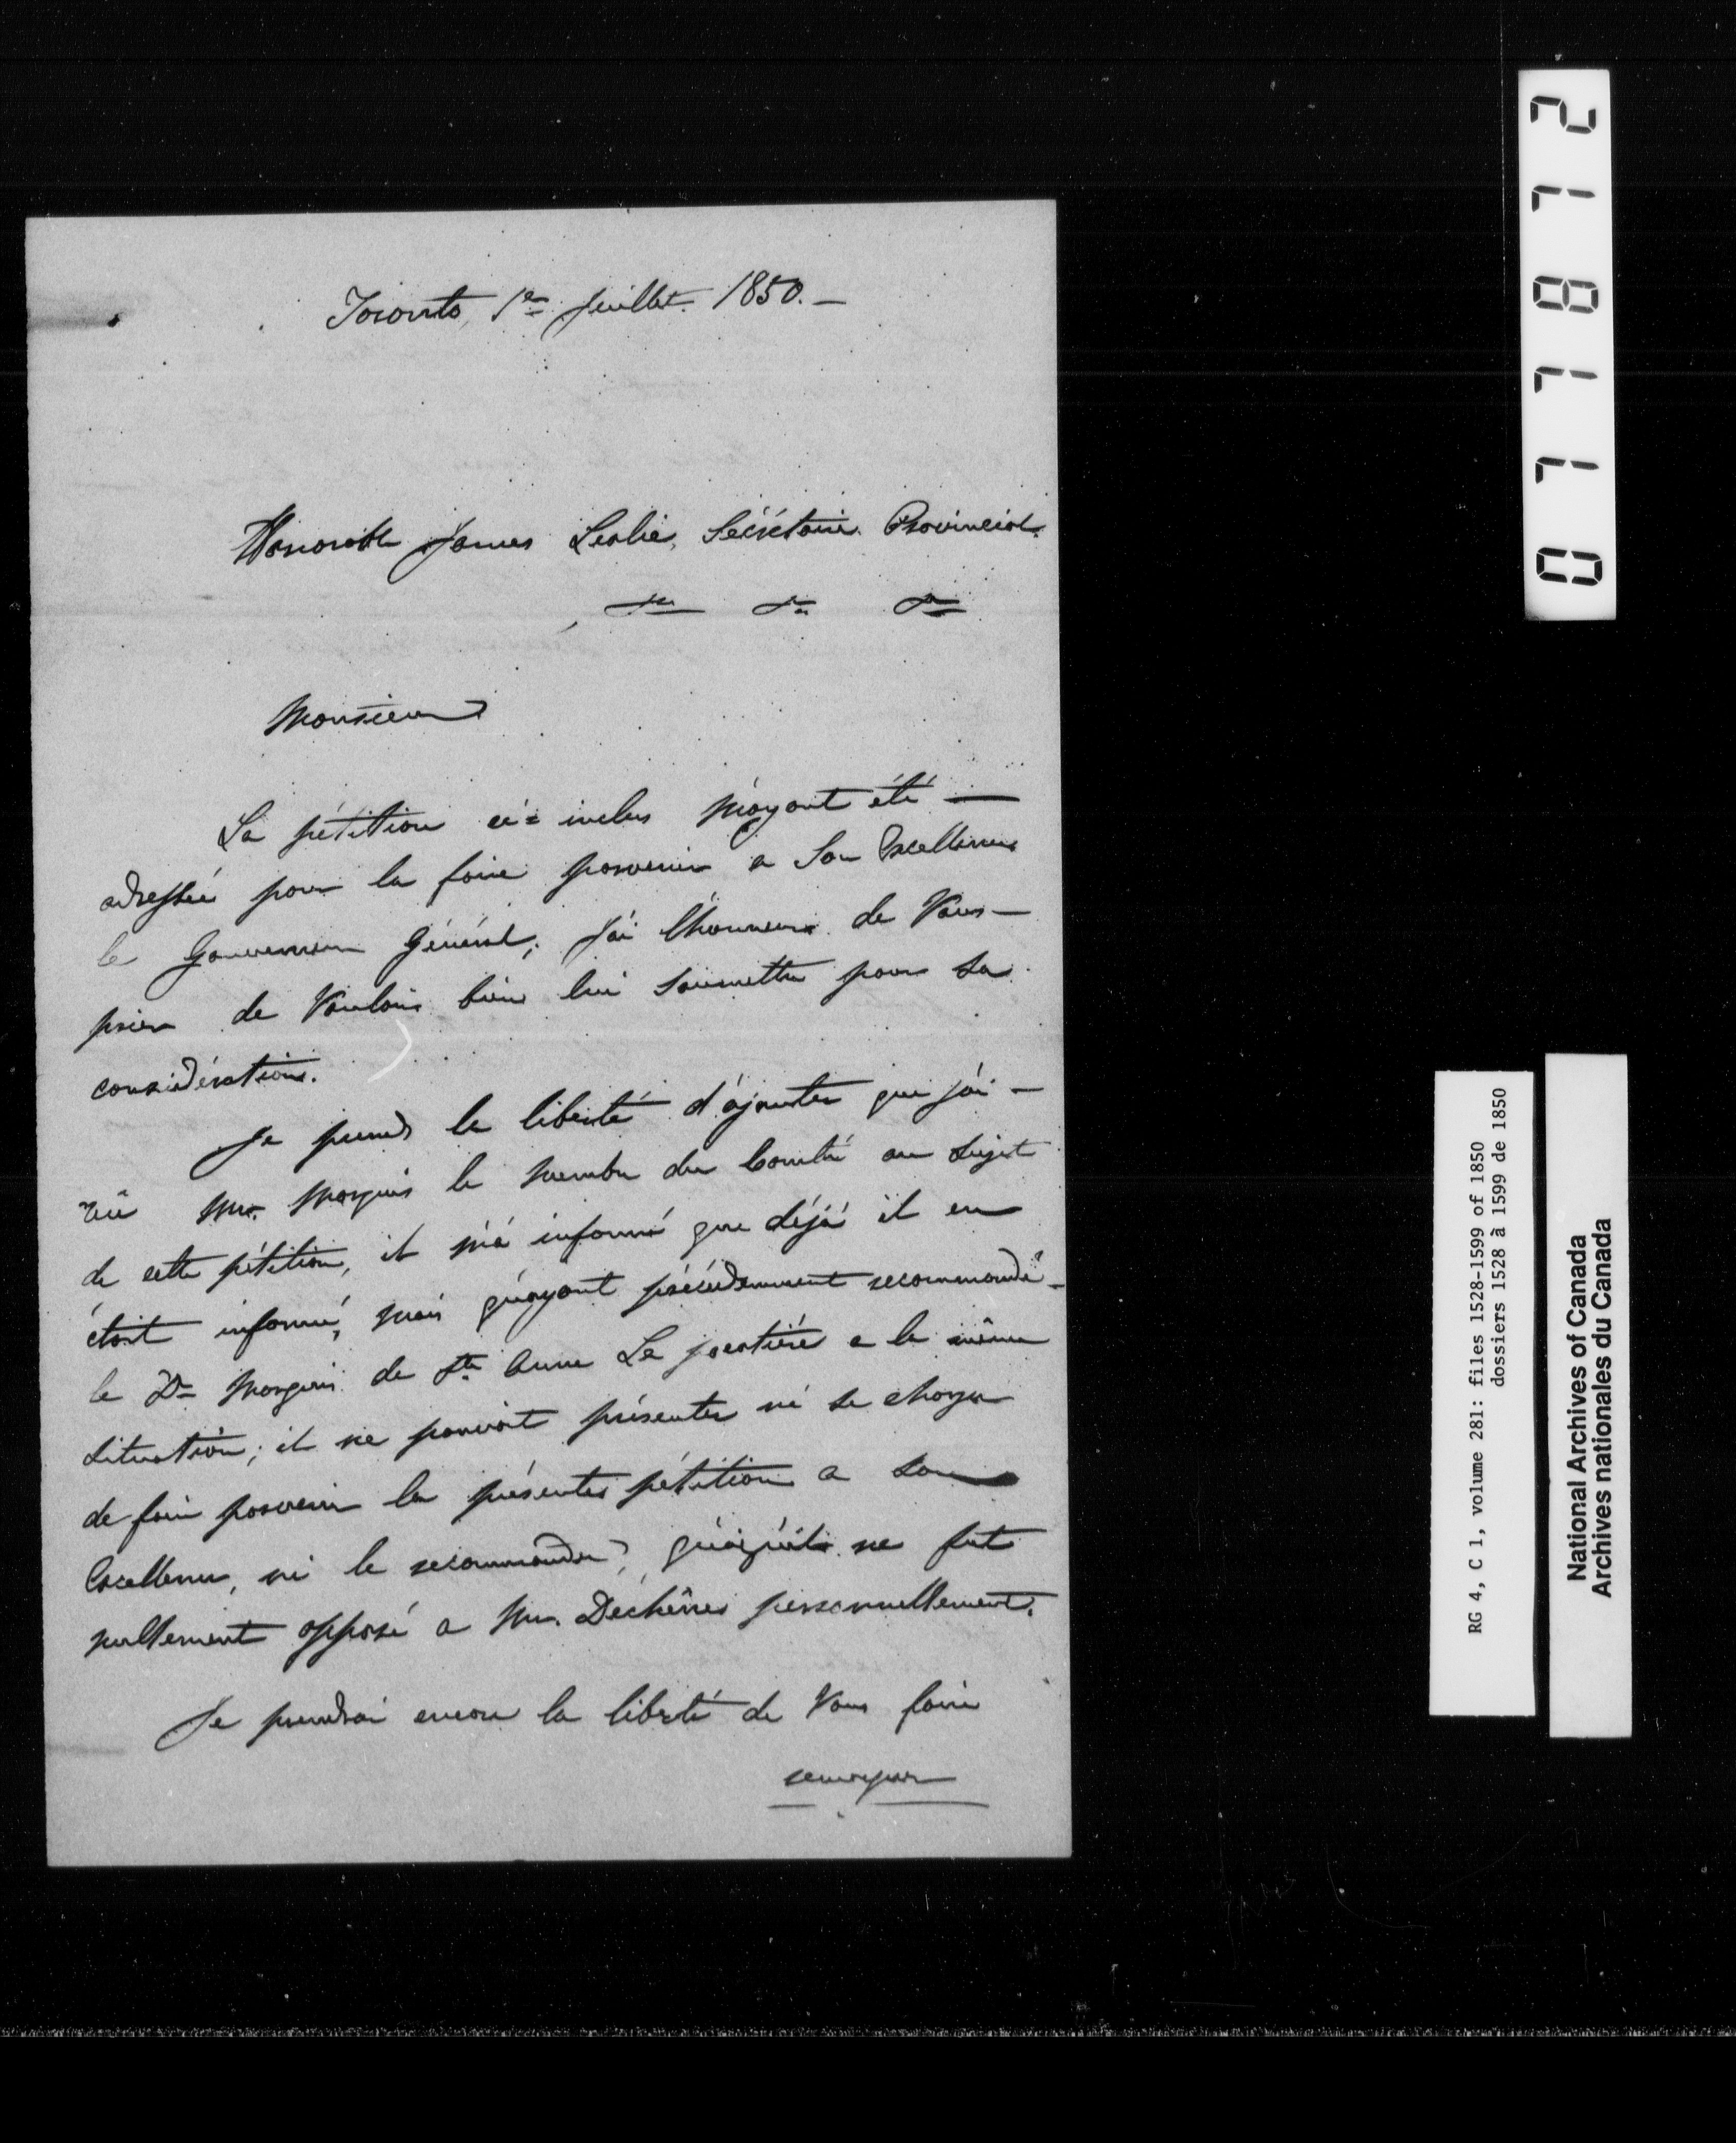 Toronto, 1er Juillet 1850. —
Honorable James Leslie, Sécrétaire Provincial.
&c &c &c
Monsieur
La pétition ci-inclus m'ayant été —
adressée pour la faire parvenir a Son Excellence
le Gouverneur Général; J'ai l'honneur de Vous —
prier de Vouloir bien lui soumettre pour sa
considération.
Je prends la liberté d'ajouter que j'ai —
vû Mr. Marquis le membre du Comté au sujet
de cette pétition, il m'a informé que déjà il en
était informé, mais qu'ayant précédemment recommandé —
le Dr Marquis de Ste Anne La pocatière a la même
situation; il ne pouvait présenter ni se charger
de faire parvenir la présente pétition a Son
Excellence, ni la recommander, quoiqu'il ne fut
nullement opposé a Mr. Dechênes personnellement.
Je prendrai encore la liberté de Vous faire
remarquer
0 7 7 8 7 2
RG 4, C 1, volume 281: files 1528-1599 of 1850
dossiers 1528 à 1599 de 1850
National Archives of Canada
Archives nationales du Canada